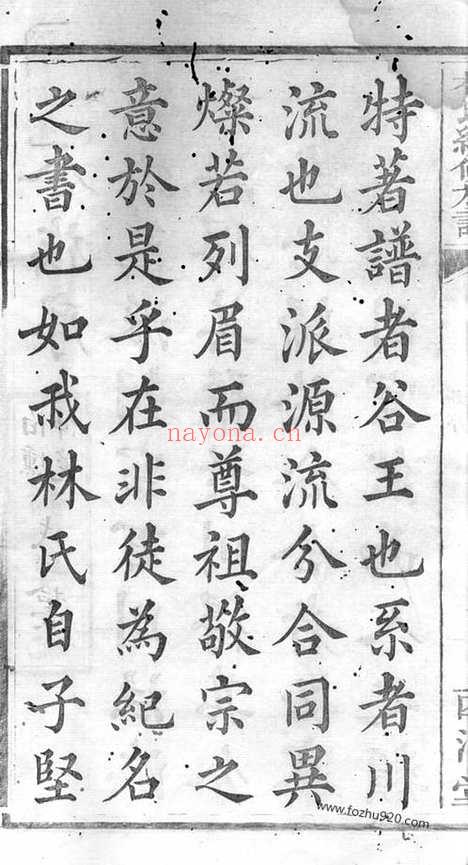 特著譜者谷王也系者川
流也支派源流分合同異
燦若列眉而尊祖敬宗之
意於是乎在非徒為紀名
之書也如我林氏自子堅
nayona.cn
www.fozhu920.com